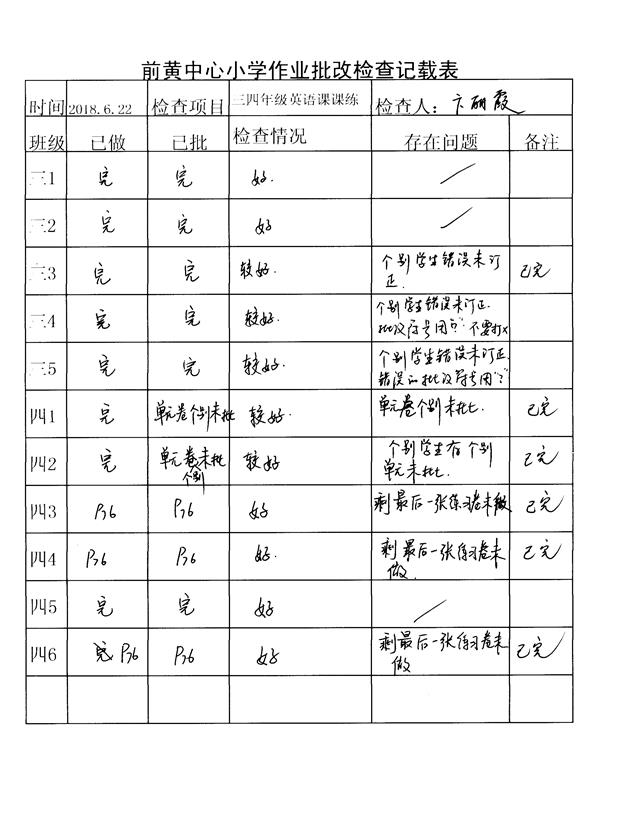 前黄中心小学作业批改检查记载表
时间 2018.6.22 检查项目 三四年级英语课课练 检查人：卞丽霞
班级 已做 已批 检查情况 存在问题 备注
三1 完 完 好.
三2 完 完 好
三3 完 完 较好. 个别学生错误未订
正. 已完
三4 完 完 较好. 个别学生错误未订正.
批改符号用"?"不要打×
三5 完 完 较好. 个别学生错误未订正
错误的批改符号用"?"
四1 完 单元卷个别未批 较好. 单元卷个别未批. 已完
四2 完 单元卷未批
个别 较好 个别学生有个别
单元未批. 已完
四3 P76 P76 好 剩最后一张练习卷未做 已完
四4 P76 P76 好. 剩最后一张练习卷未
做. 已完
四5 完 完 好
四6 完 P76 P76 好 剩最后一张练习卷未
做 已完